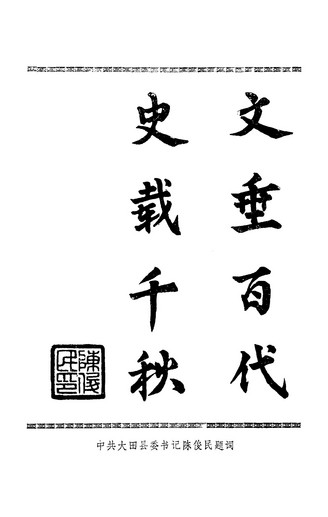 文垂百代
史载千秋
陈俊民印
中共大田县委书记陈俊民题词